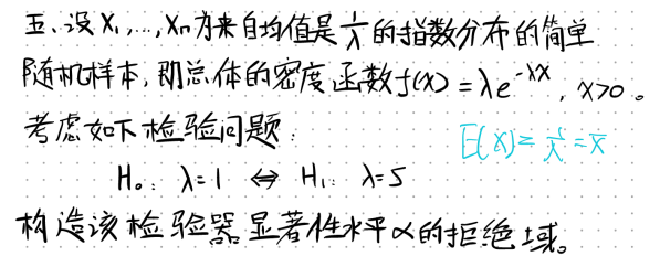 五、设X₁,…,Xn为来自均值是1/λ的指数分布的简单
随机样本,即总体的密度函数f(x)=λe^{-λx}, x>0。
考虑如下检验问题:
E(X)=1/λ=x̄
H₀: λ=1 ⇔ H₁: λ=5
构造该检验器显著性水平α的拒绝域。